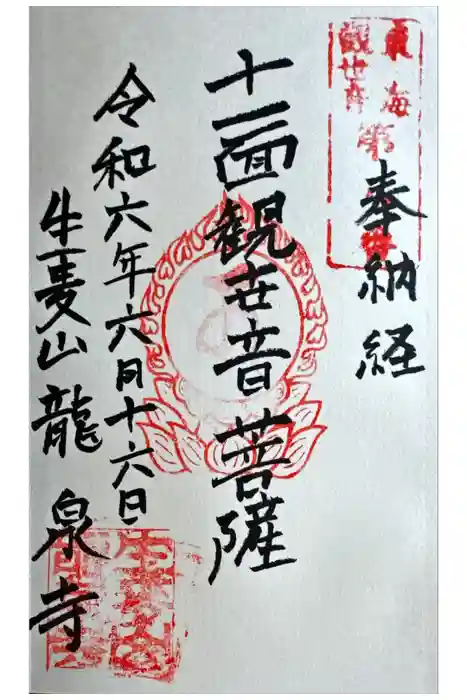 奉納経
東海
観世音
第
十一面観世音菩薩
令和六年六月十六日
牛妻山龍泉寺